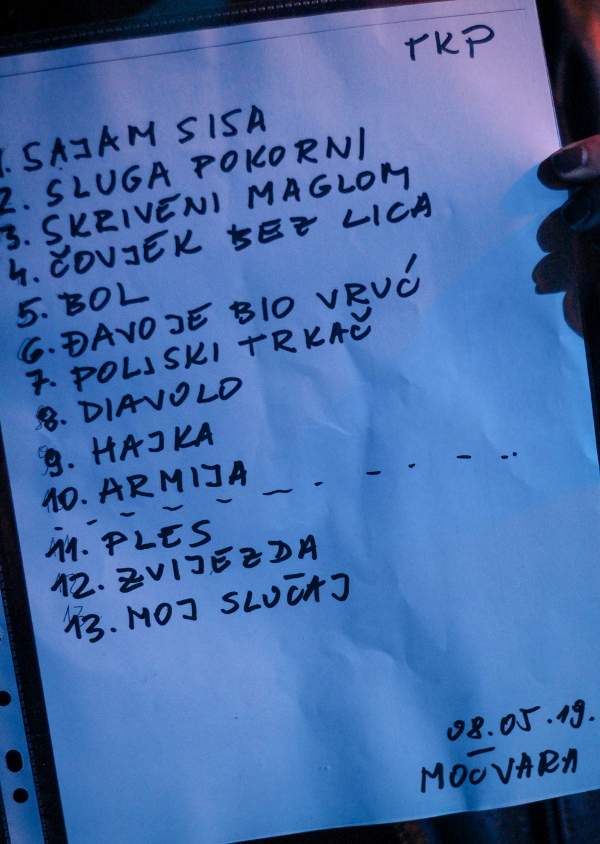 TKP
1. SAJAM SISA
2. SLUGA POKORNI
3. SKRIVENI MAGLOM
4. ČOVJEK BEZ LICA
5. BOL
6. ĐAVO JE BIO VRUĆ
7. POLJSKI TRKAČ
8. DIAVOLO
9. HAJKA
10. ARMIJA
11. PLES
12. ZVIJEZDA
13. MOJ SLUČAJ
08.05.19.
MOČVARA